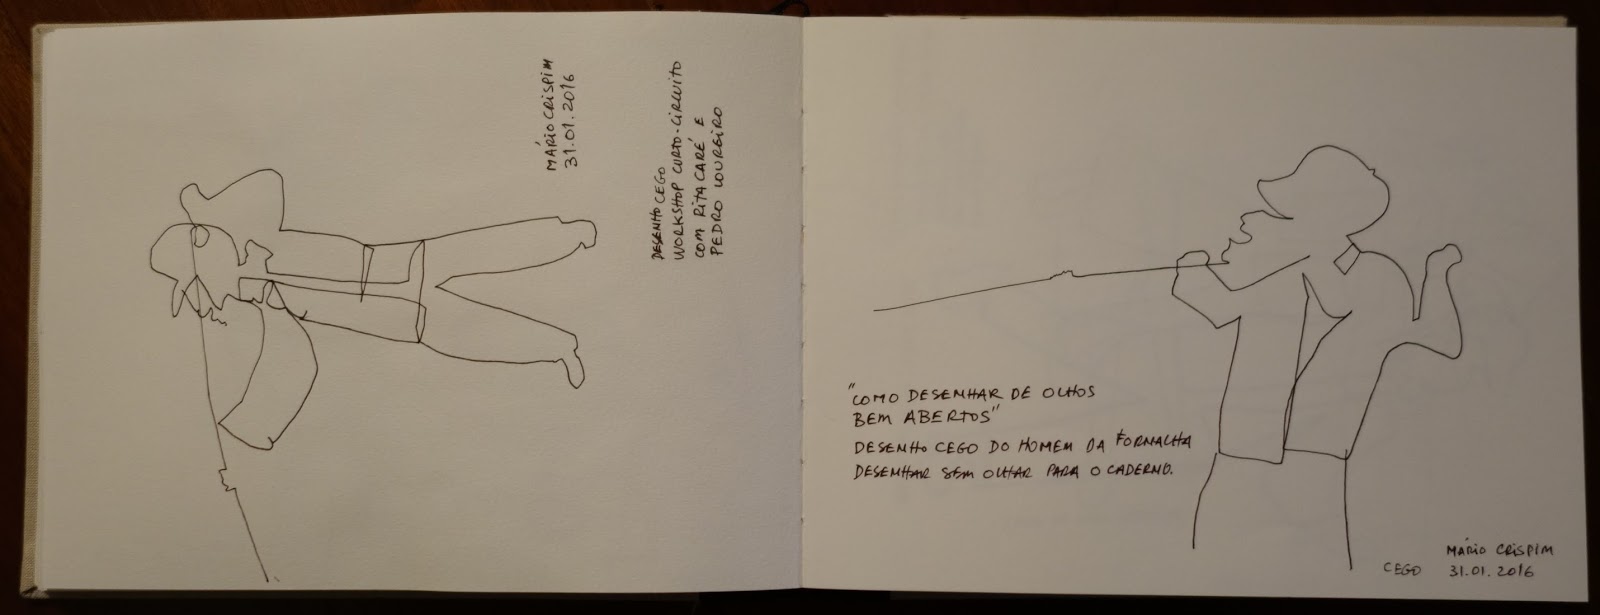 MÁRIO CRISPIM
31.01.2016
DESENHO CEGO
WORKSHOP CURTO-CIRCUITO
COM RITA CARÉ E
PEDRO LOUREIRO
"COMO DESENHAR DE OLHOS
BEM ABERTOS"
DESENHO CEGO DO HOMEM DA FORNALHA
DESENHAR SEM OLHAR PARA O CADERNO.
CEGO
MÁRIO CRISPIM
31.01.2016